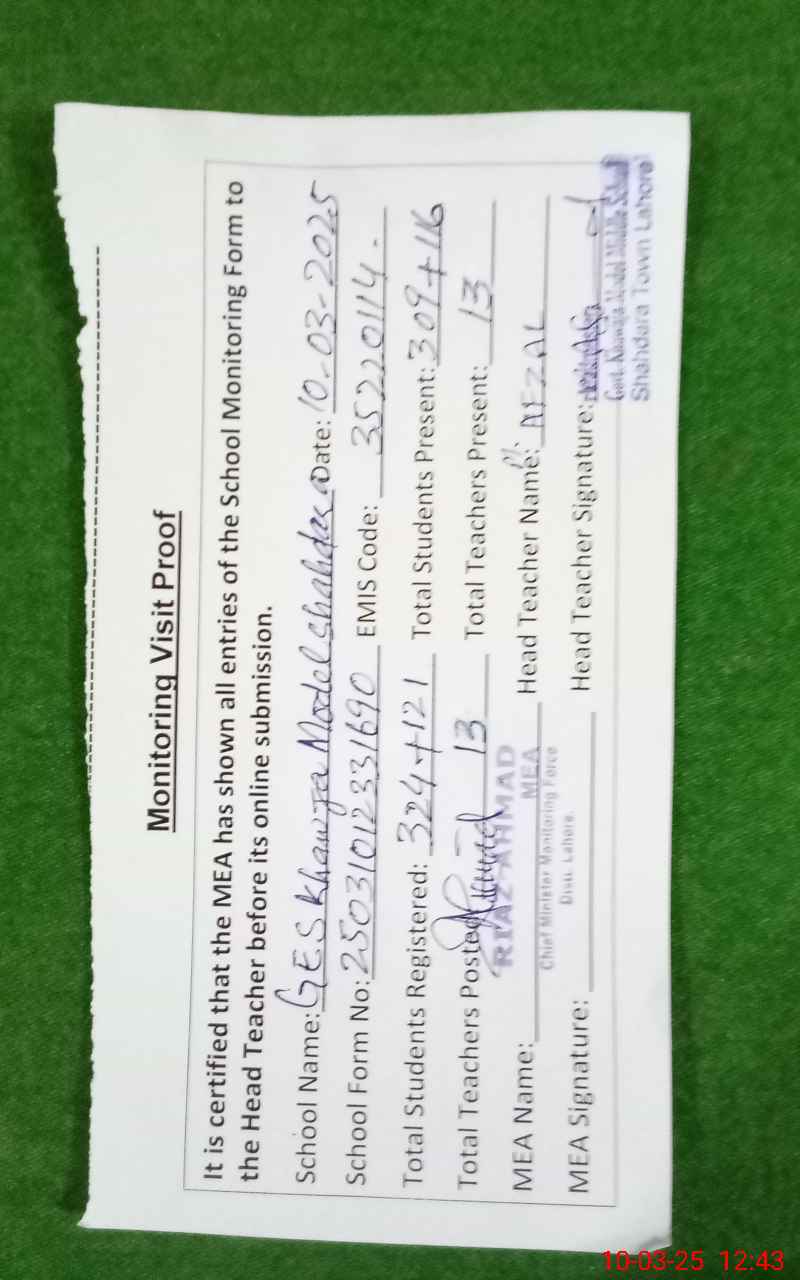 Monitoring Visit Proof
It is certified that the MEA has shown all entries of the School Monitoring Form to
the Head Teacher before its online submission.
School Name: GES Khawja Model Shahdara Date: 10-03-2025
School Form No: 2503101233 1690 EMIS Code: 35220114.
Total Students Registered: 324+121 Total Students Present: 309+116
Total Teachers Posted 13 Total Teachers Present: 13
RIAZ AHMAD
MEA
MEA Name: Head Teacher Name: M. AFZAL
Chief Minister Monitoring Force
Distt. Lahore.
MEA Signature: Head Teacher Signature:
Govt. Khawaja Model Middle School
Shahdara Town Lahore
10-03-25 12:43